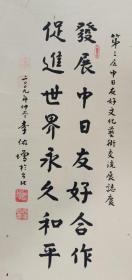 第三屆中日友好文化藝術交流展誌慶
發展中日友好合作
促進世界永久和平
二〇〇九年仲冬李佑增於北